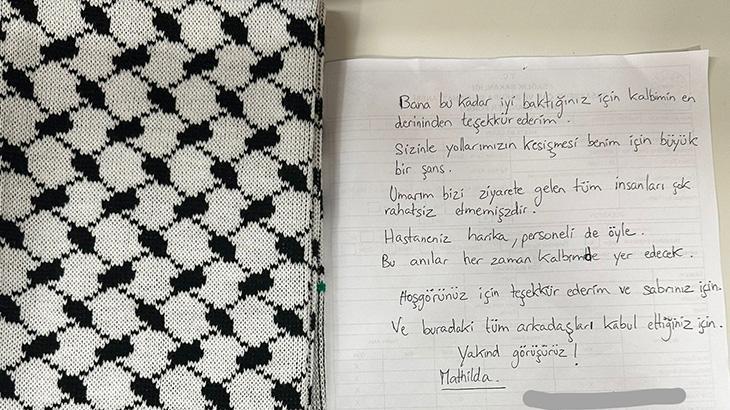 Bana bu kadar iyi baktığınız için kalbimin en
derininden teşekkür ederim.
Sizinle yollarımızın kesişmesi benim için büyük
bir şans.
Umarım bizi ziyarete gelen tüm insanları çok
rahatsız etmemişzdir.
Hastaneniz harika, personeli de öyle.
Bu anılar her zaman kalbimde yer edecek.
Hoşgörünüz için teşekkür ederim ve sabrınız için.
Ve buradaki tüm arkadaşları kabul ettiğiniz için.
Yakind görüşürüz!
Mathilda.